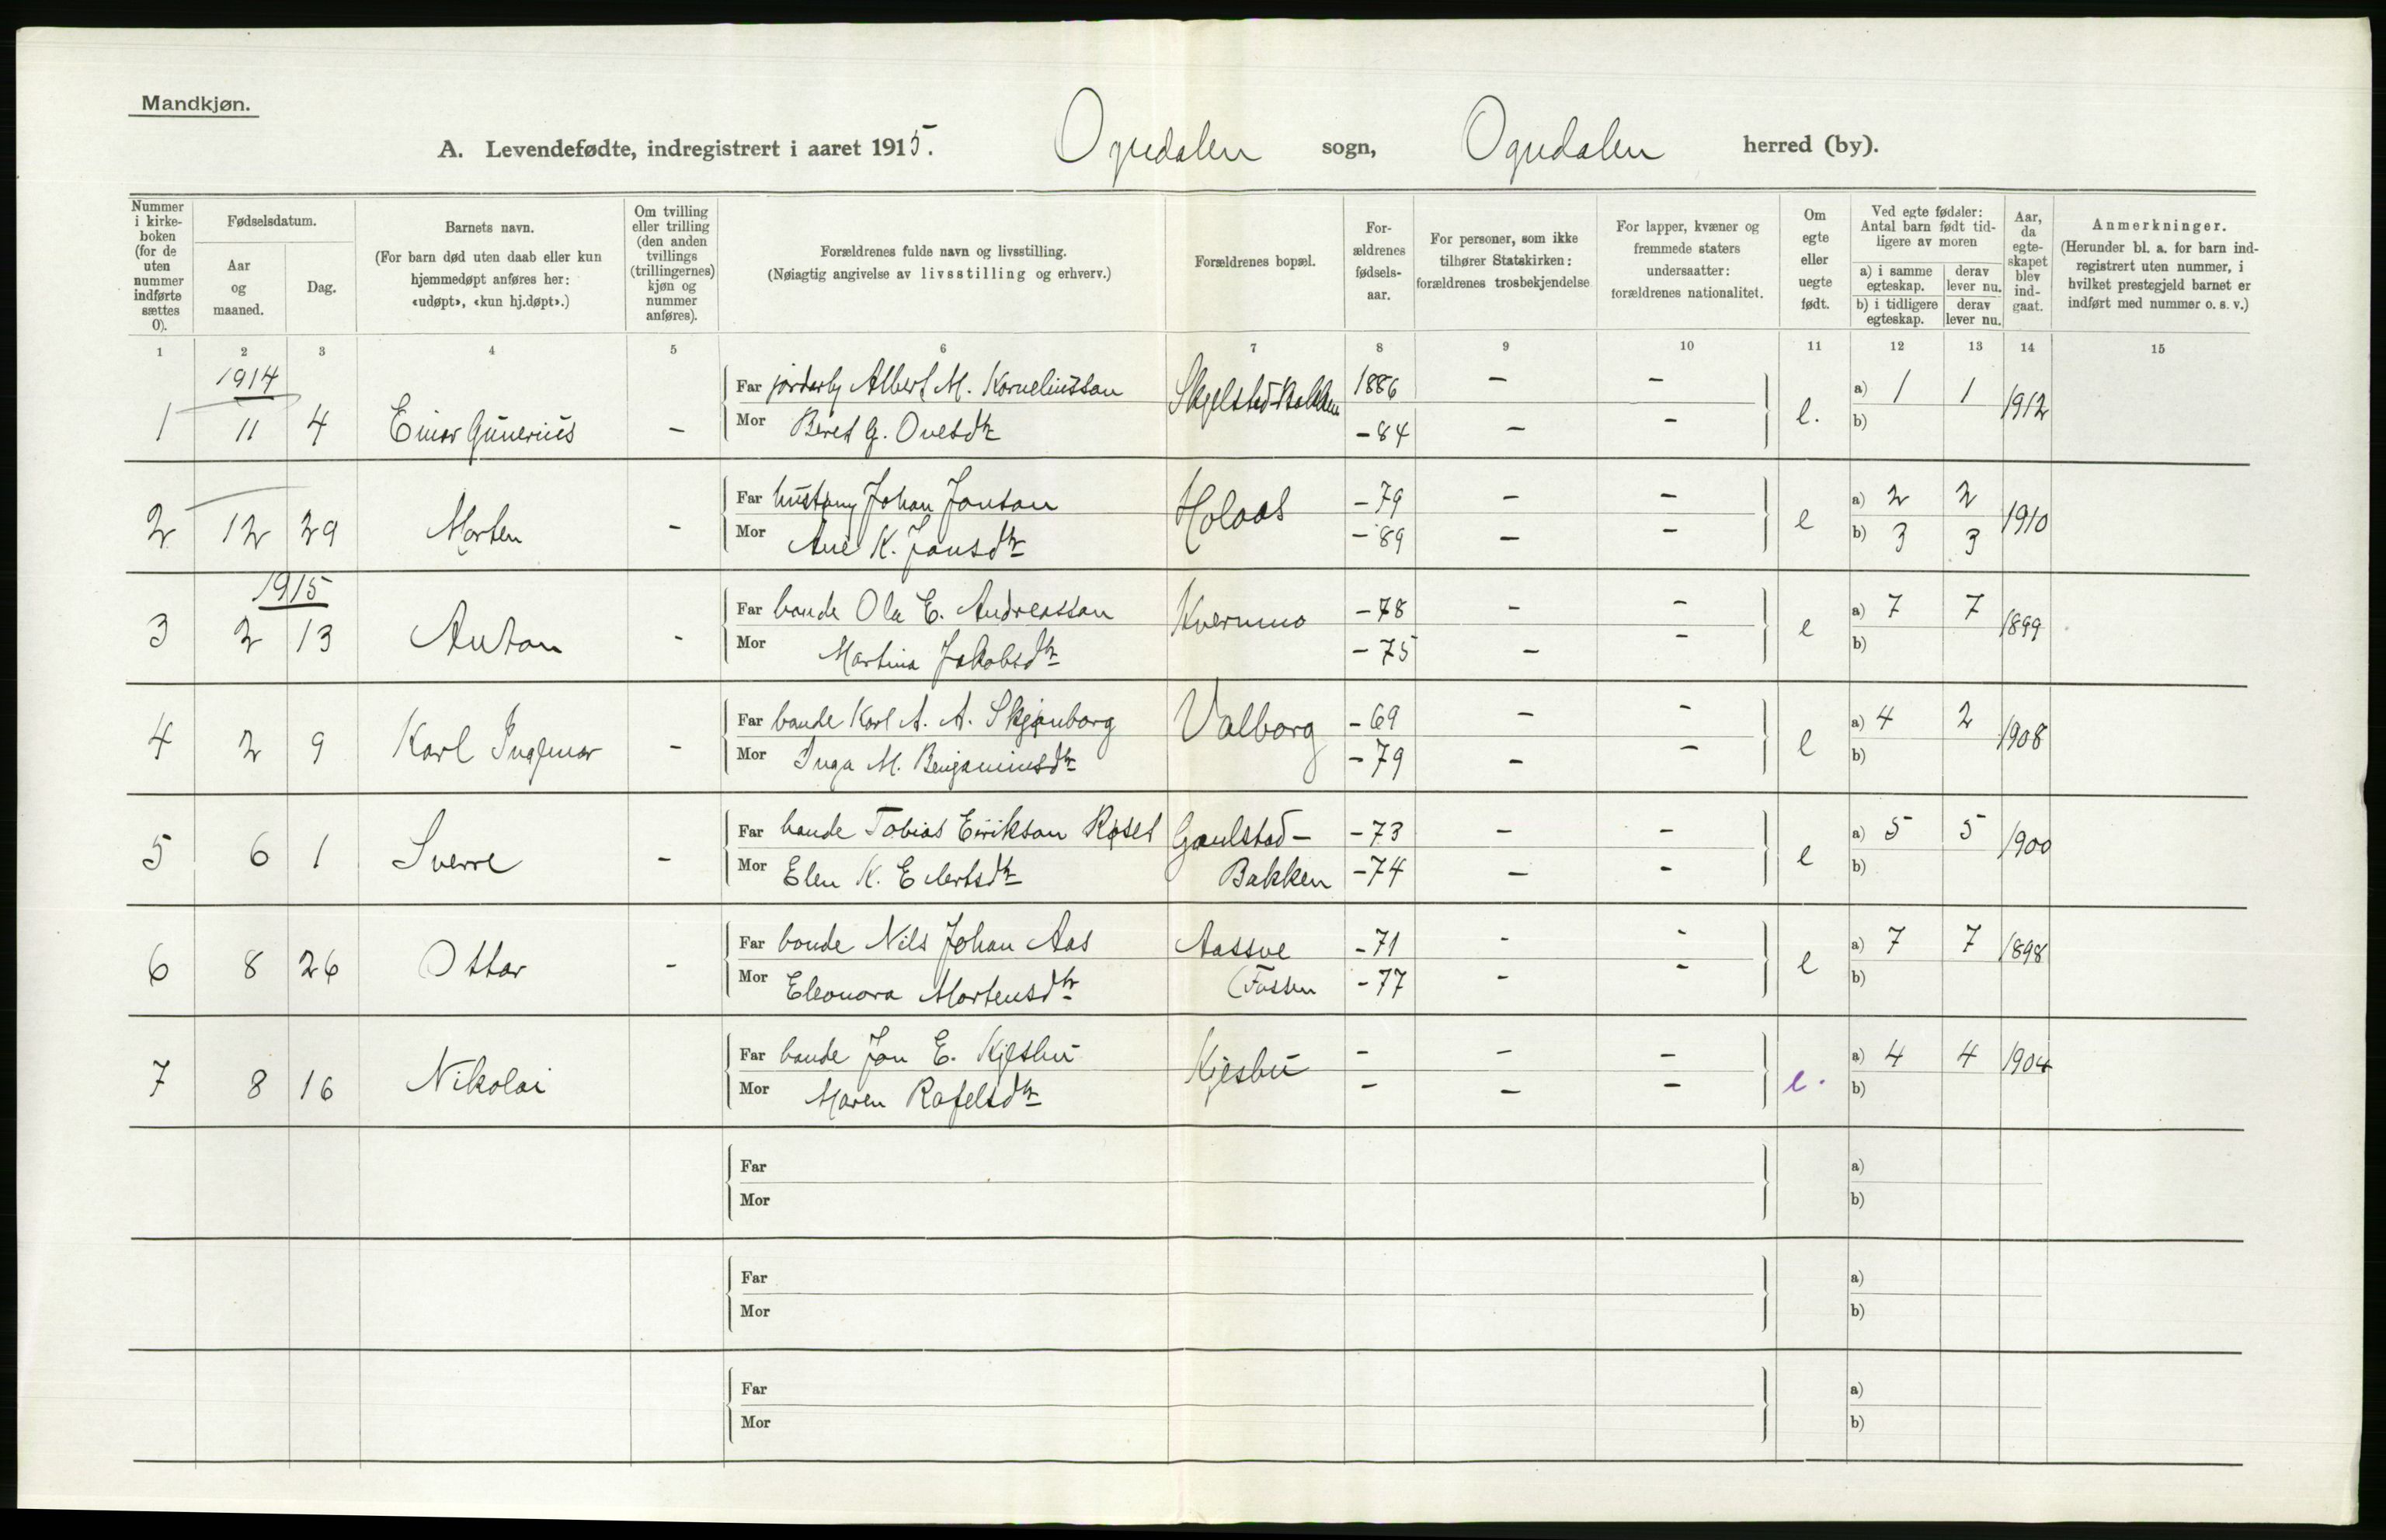 Mandkjøn.
A. Levendefødte, indregistrert i aaret 1915. Ogndalen sogn, Ogndalen herred (by).
Nummer i kirke-boken (for de uten nummer indførte sættes 0).
Fødselsdatum.
Aar og maaned.
Dag.
Barnets navn.
(For barn død uten daab eller kun hjemmedøpt anføres her: «udøpt», «kun hj.døpt».)
Om tvilling eller trilling (den anden tvillings (trillingernes) kjøn og nummer anføres).
Forældrenes fulde navn og livsstilling.
(Nøiagtig angivelse av livsstilling og erhverv.)
Forældrenes bopæl.
For-ældrenes fødsels-aar.
For personer, som ikke tilhører Statskirken: forældrenes trosbekjendelse
For lapper, kvæner og fremmede staters undersaatter: forældrenes nationalitet.
Om egte eller uegte født.
Ved egte fødsler: Antal barn født tid-ligere av moren
a) i samme egteskap.
derav lever nu.
b) i tidligere egteskap.
derav lever nu.
Aar, da egte-skapet blev ind-gaat.
Anmerkninger.
(Herunder bl. a. for barn ind-registrert uten nummer, i hvilket prestegjeld barnet er indført med nummer o. s. v.)
1 2 3 4 5 6 7 8 9 10 11 12 13 14 15
1914
1 11 4 Einar Gunerius - Far Albert M. Korneliussan Skjelstad-Bakken 1886 - - e. a) 1 1 1912
Mor Beret G. Ovesdtr - 84 - - b)
2 12 29 Morten - Far Johan Jonson Holaas - 79 - - e a) 2 2 1910
Mor Ane K. Jonsdtr - 89 - - b) 3 3
1915
3 2 13 Anton - Far bonde Ola E. Andreassan Kvernmo - 78 - - e a) 7 7 1899
Mor Martina Jakobsdtr - 75 - - b)
4 2 9 Karl Ingmar - Far bonde Karl A. A. Skjønborg Valborg - 69 - - e a) 4 2 1908
Mor Inga M. Benjaminsdtr - 79 - - b)
5 6 1 Sverre - Far bonde Tobias Eirikson Røset Gaulstad- - 73 - - e a) 5 5 1900
Mor Elen K. Eilertsdtr Bakken - 74 - - b)
6 8 26 Ottar - Far bonde Nils Johan Aas Aassve - 71 - - e a) 7 7 1898
Mor Eleonora Mortensdtr (Fossen - 77 - - b)
7 8 16 Nikolai Far bonde Jon E. Kjesbu Kjesbu - - - e. a) 4 4 1904
Mor Maren Rafelsdtr - - - b)
Far a)
Mor b)
Far a)
Mor b)
Far a)
Mor b)